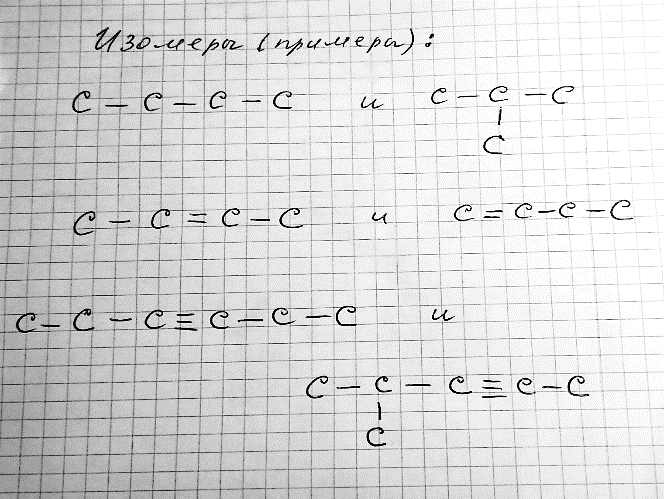 Изомеры (примеры):
C – C – C – C и C – C – C
|
C
C – C = C – C и C = C – C – C
C – C – C ≡ C – C – C и
C – C – C ≡ C – C
|
C